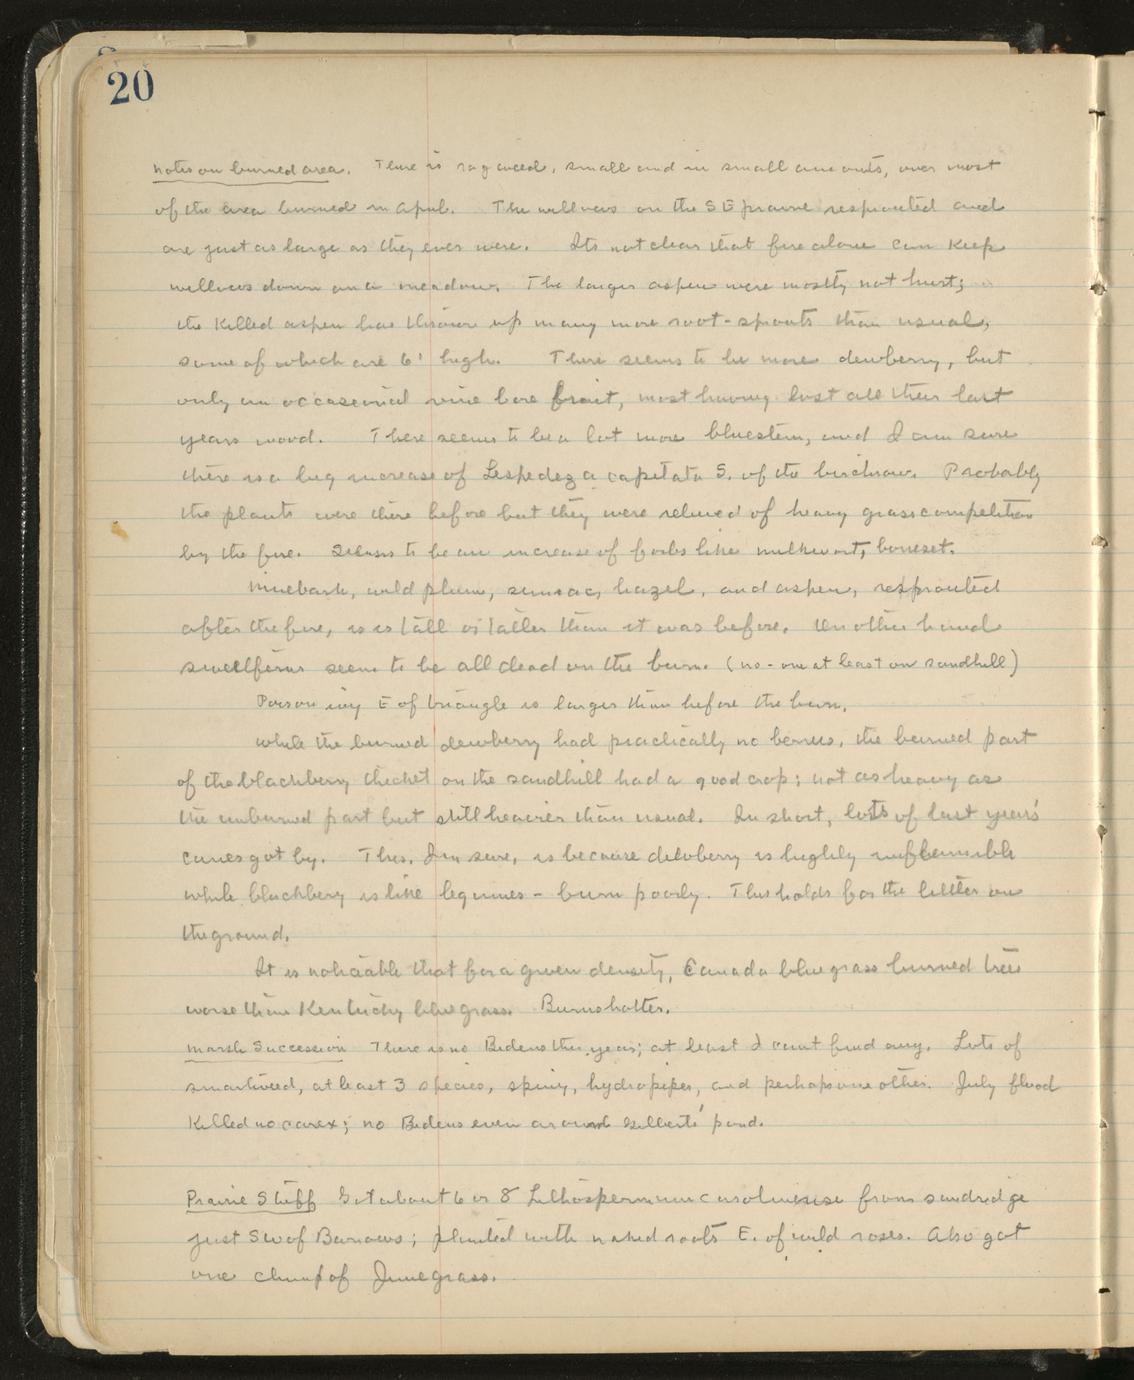 20
Notes on burned area. There is ragweed, small and in small amounts, over most
of the area burned in April. The willows on the SE prairie resprouted and
are just as large as they ever were. Its not clear that fire alone can keep
willows down on a meadow. The larger aspen were mostly not hurt;
the killed aspen has thrown up many more root-sprouts than usual,
some of which are 6' high. There seems to be more dewberry, but
only an occasional vine bore fruit, most having lost all their last
years wood. There seems to be a lot more bluestem, and I am sure
there is a big increase of Lespedeza capitata S. of the birchrow. Probably
the plants were there before but they were relieved of heavy grass competition
by the fire. Seems to be an increase of forbs like milkwort, boneset.
Ninebark, wild plum, sumac, hazel, and aspen, resprouted
after the fire, is as tall or taller than it was before. On other hand
sweetferns seem to be all dead on the burn. (no - one at least on sandhill)
Poison ivy E of triangle is larger than before the burn.
While the burned dewberry had practically no berries, the burned part
of the blackberry thicket on the sandhill had a good crop; not as heavy as
the unburned part but still heavier than usual. In short, lots of last years'
canes got by. This, I'm sure, is because dewberry is highly inflammible
while blackberry is like legumes - burn poorly. This holds for the litter on
the ground.
It is noticable that for a given density, Canada bluegrass burned trees
worse than Kentucky bluegrass. Burns hotter.
Marsh Succession There is no Bidens this year; at least I cant find any. Lots of
smartweed, at least 3 species, spiny, hydropiper, and perhaps one other. July flood
killed no carex; no Bidens even around Gilberts' pond.
Prairie Stuff Got about 6 or 8 Lithospermum caroliniense from sandridge
just SW of Barrows; planted with naked roots E. of wild roses. Also got
one clump of Junegrass.